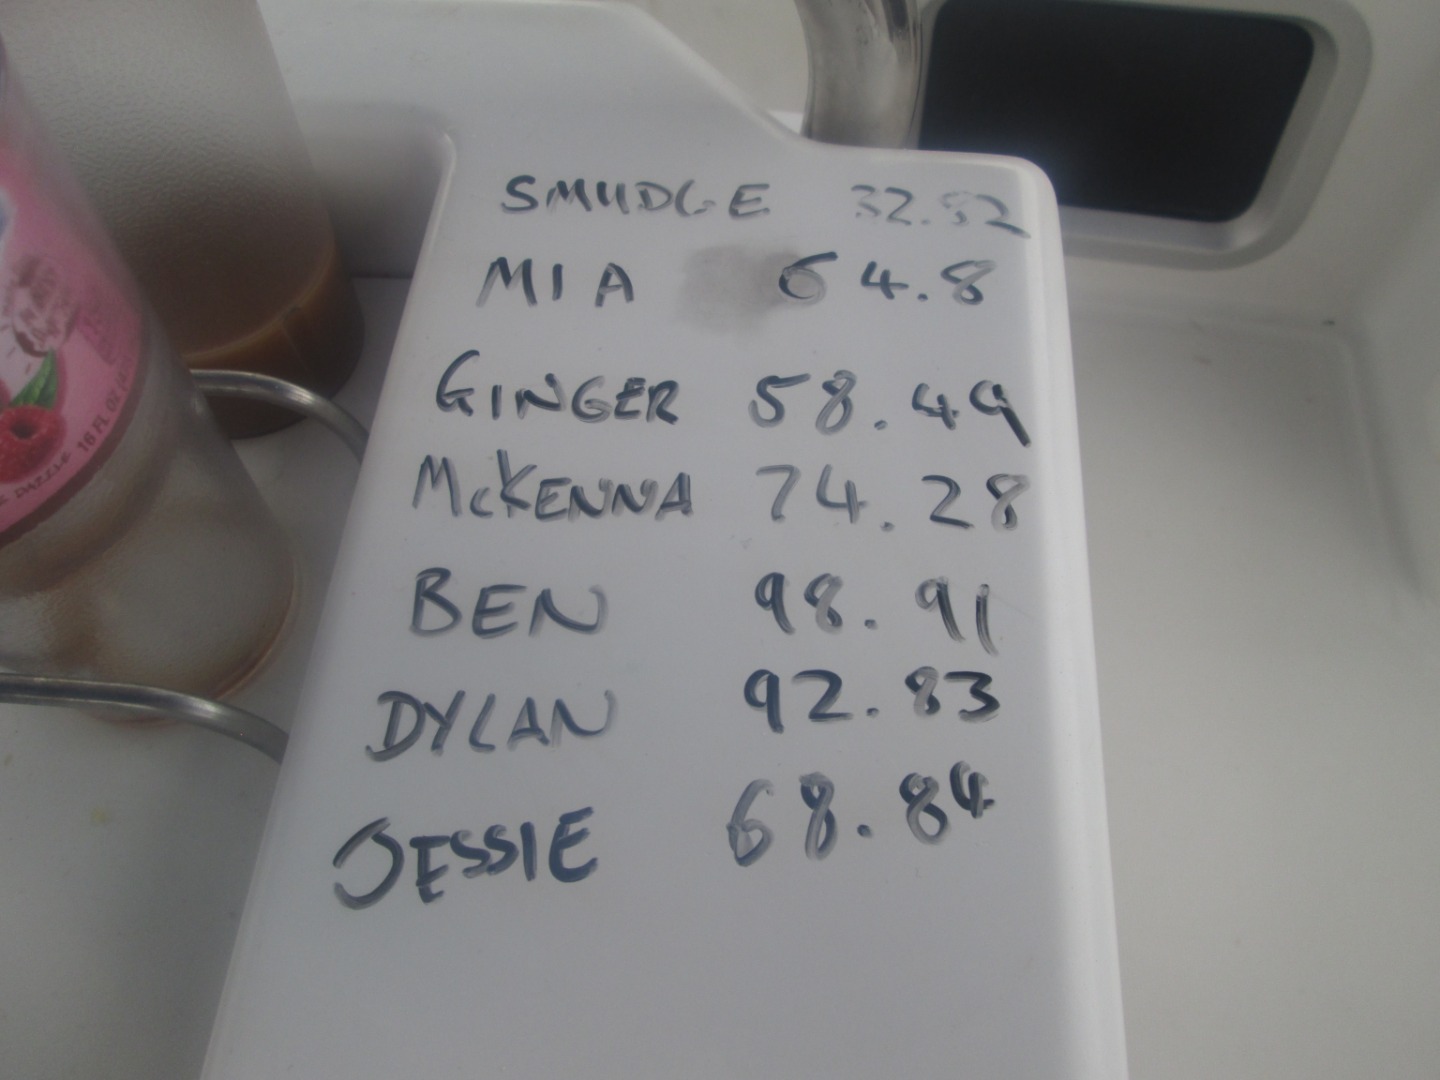 SMUDGE 32.82
MIA 64.8
GINGER 58.49
McKENNA 74.28
BEN 98.91
DYLAN 92.83
JESSIE 68.84
DAZZLE 16 FL OZ